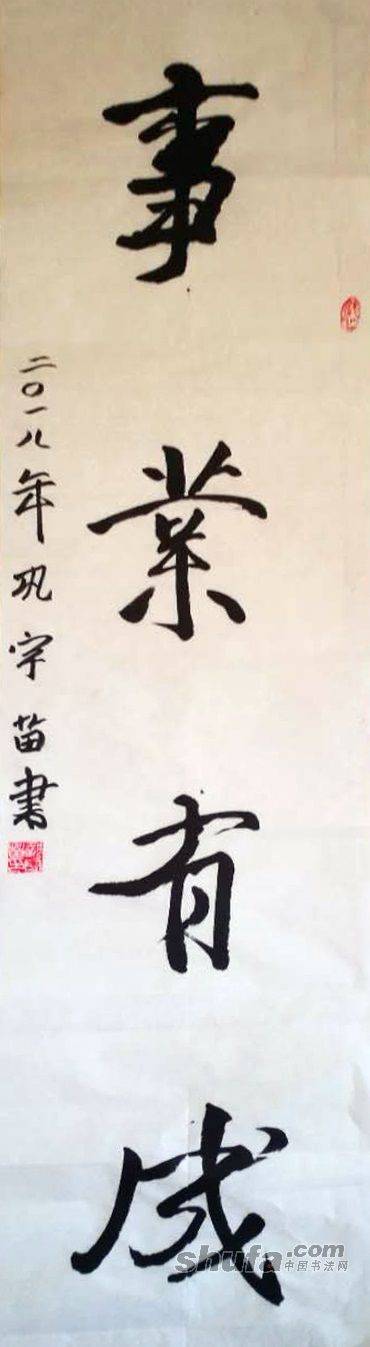 事業有成
二〇一八年巩宇苗書
shufa.com
中国书法网